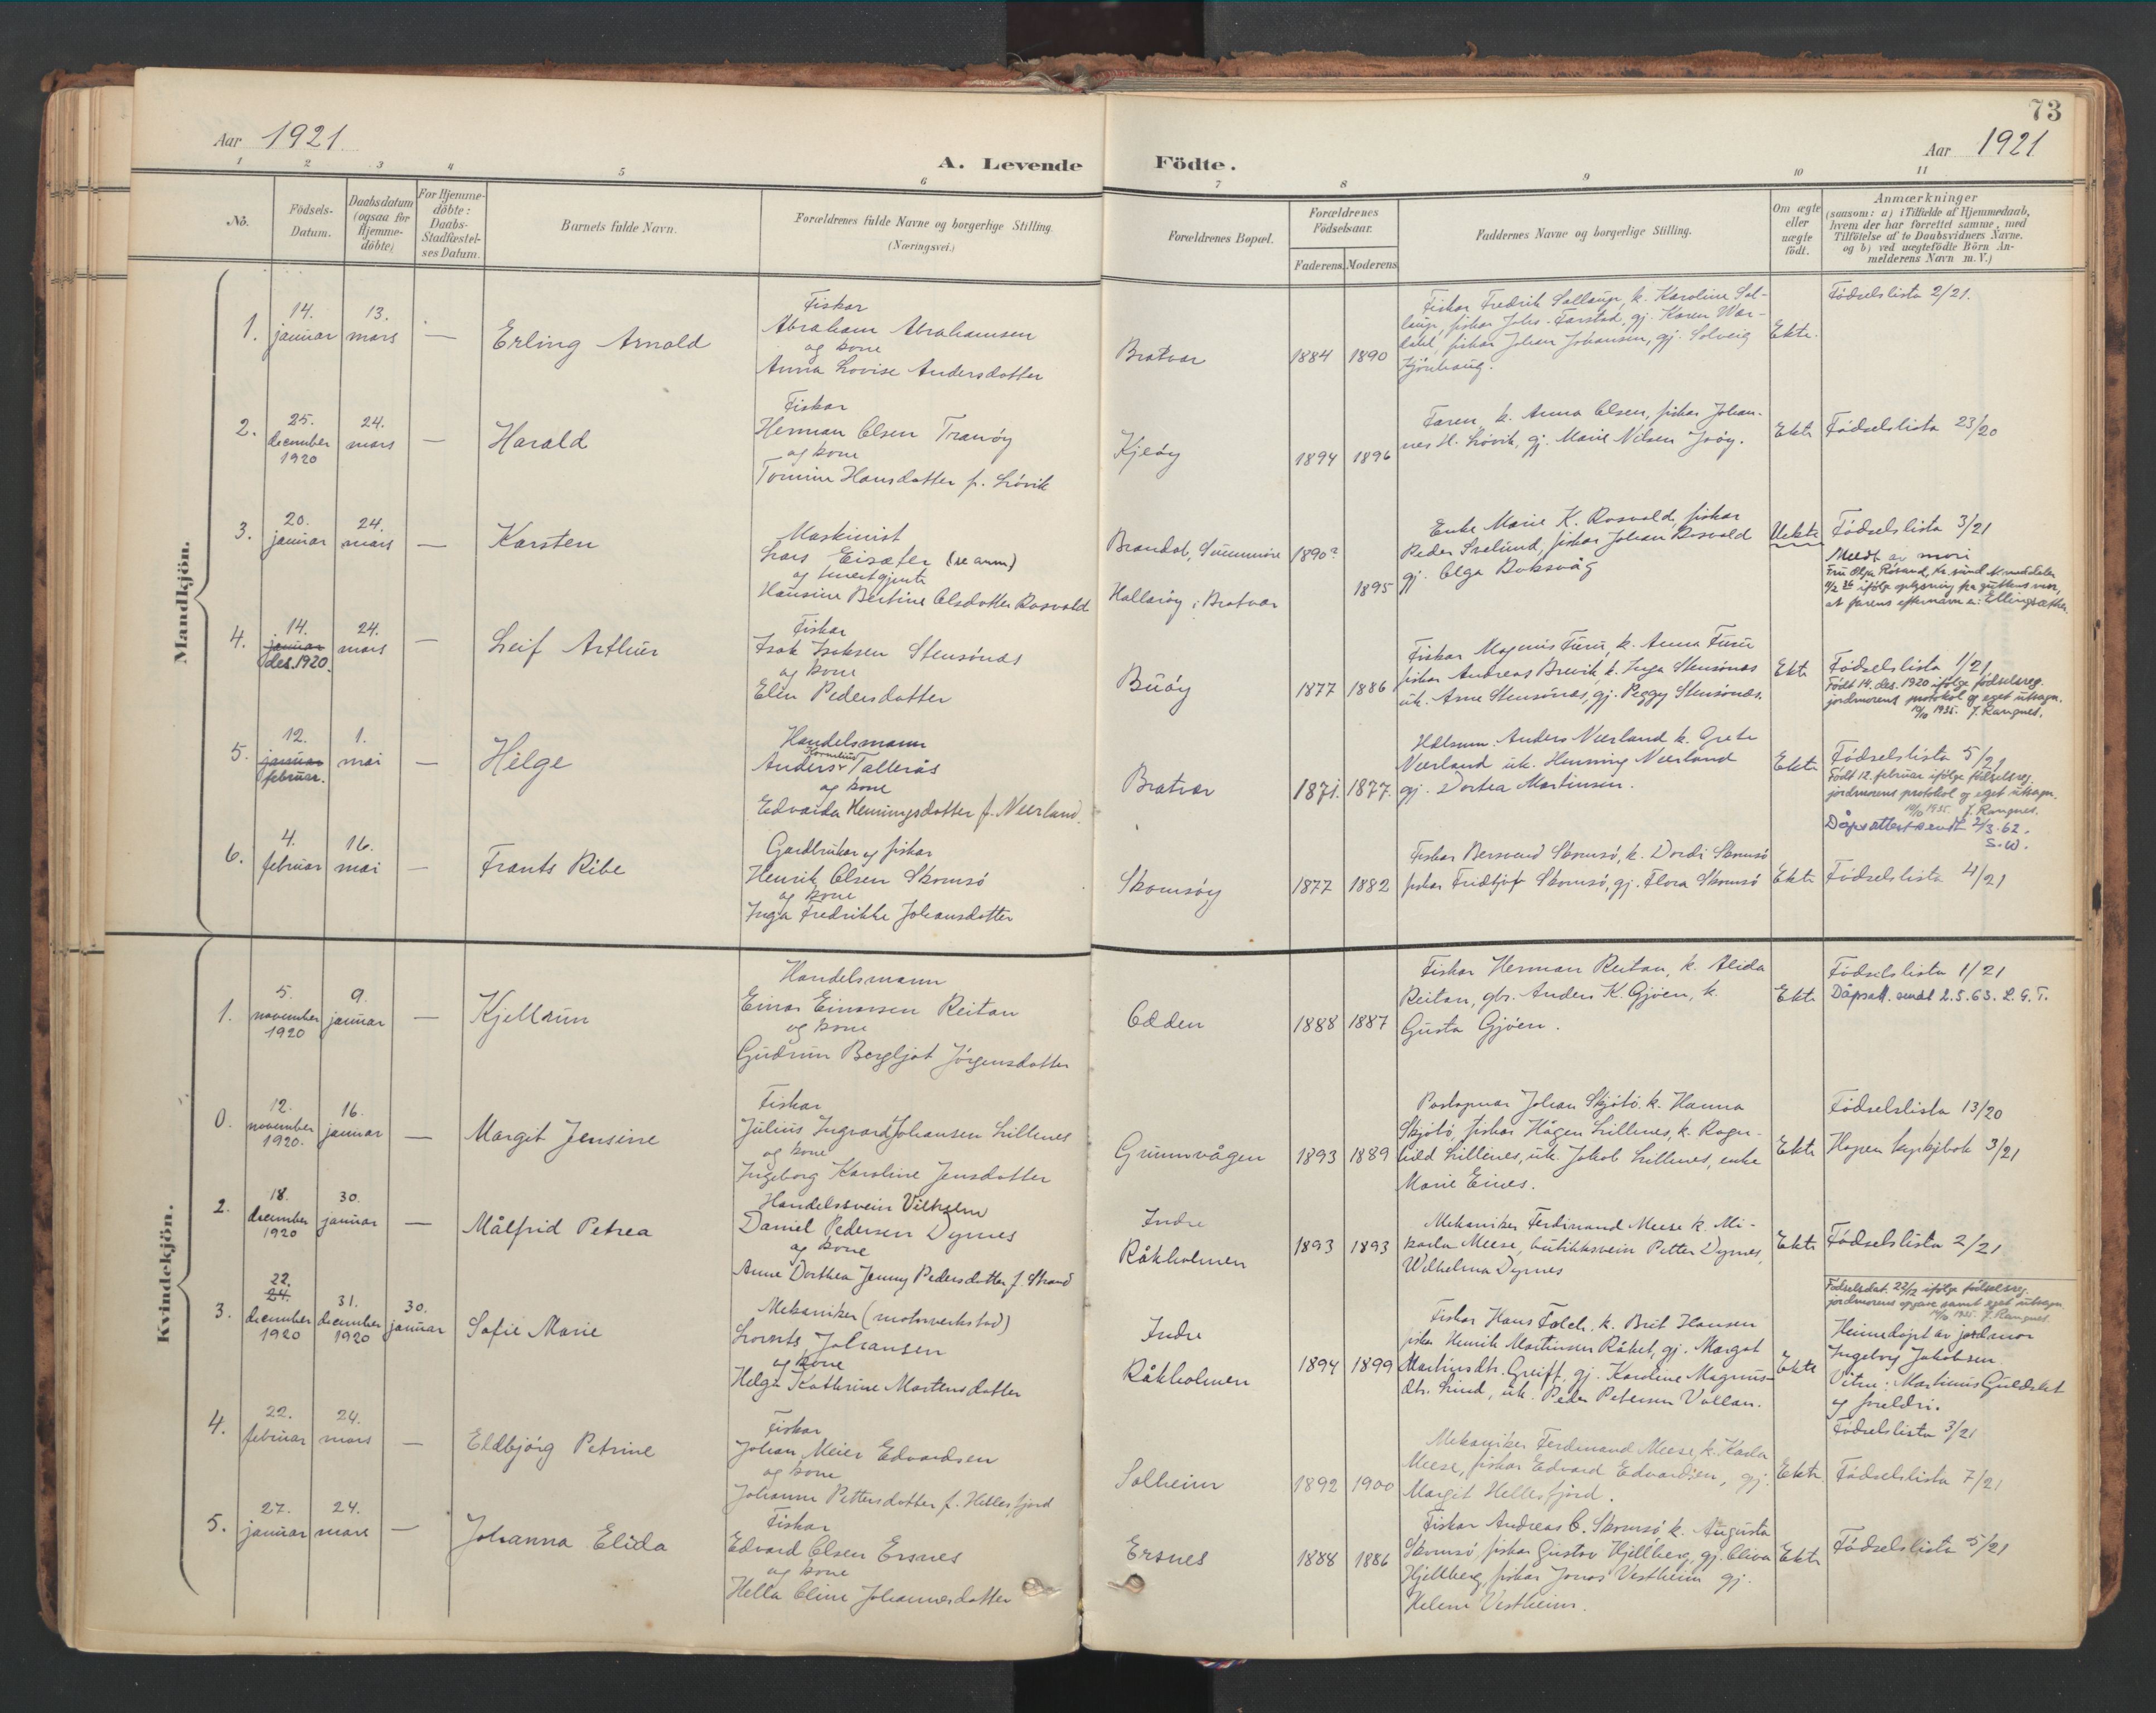 73
Aar 1921.
Aar 1921
A. Levende Födte.
1 2 3 4 5 6 7 8 9 10 11
No.
Födsels-
Datum.
Daabsdatum
(ogsaa for
Hjemme-
döbte)
For Hjemme-
döbte:
Daabs-
Stadfæstel-
ses Datum.
Barnets fulde Navn.
Forældrenes fulde Navne og borgerlige Stilling.
(Næringsvei.)
Forældrenes Bopæl.
Forældrenes
Födselsaar.
Faderens. Moderens.
Faddernes Navne og borgerlige Stilling.
Om ægte
eller
uægte
födt.
Anmærkninger
(saasom: a) i Tilfælde af Hjemmedaab,
hvem der har forrettet samme, med
Tilföielse af to Daabsvidners Navne,
og b) ved uægtefödte Börn An-
melderens Navn m. V.)
Mandkjön.
1.
14.
januar
13.
mars
—
Erling Arnold
Fiskar
Abraham Abrahamsen
og kone
Anna Lovise Andersdotter
Bratvær
1884 1890
Fiskar Fredrik Sollaup, k. Karoline Sol-
laup, fiskar Johs. Farstad, gj. Karen War-
fiskar Johan Johansen, gj. Solveig
Ekte.
Fødselslista 2/21.
2.
25.
december
1920
24.
mars
—
Harald
Fiskar
Herman Olsen Tranöy
og kone
Tomine Hansdotter f. Lövik
Kjeöy
1894 1896
Faren, k. Anna Olsen, fiskar Johan-
nes H. Lövik, gj. Marie Nilsen
Ekte
Fødselslista 23/20
3.
20.
januar
24.
mars
—
Karsten
Maskinist
Lars Eisæter (se anm)
og
Hansine Bertine Olsdotter Rosvold
Brandal, Sunnmöre
Halløröy i Bratvær
1890?
1895
Enke Marie K. Rosvold, fiskar
Peder fiskar Johan Rosvold
gj. Olga
Uekte
Fødselslista 3/21
Meldt av mori
Fru Olga Røsand, Kr.sund N. meddeler
11/2 26 ifølge oplysning fra guttens mor,
at farens efternavn er: Ellingsæther.
4.
14.
januar
des. 1920.
24.
mars
—
Leif Arthur
Fiskar
Isak Isaksen Stensönes
og kone
Elen Pedersdotter
Buöy
1877 1886
Fiskar Magnus Furu, k. Anna Furu
fiskar Andreas Brevik k. Inga Stensönes
uk. Arne Stensönes, gj. Peggy Stensönes.
Ekte
Fødselslista 1/21
Født 14. des. 1920 ifølge fødselsreg.
jordmorens protokol og eget utsagn.
10/10 1935. J. Rangnes.
5.
12.
januar
februar.
1.
mai
—
Helge
Handelsmann
Kornelius
Anders Tallerås
og kone
Edvarda Henningsdotter f. Neerland.
Bratvær
1871. 1877.
Hdlsmn. Anders Neerland k. Grete
Neerland uk. Henning Neerland
gj. Dortea Martinsen.
Ekte
Fødselslista 5/21
Født 12. februar ifølge fødselsreg.
jordmorens protokol og eget utsagn.
10/10 1935. J. Rangnes.
Dåpsattest sendt 2/3-62.
S.W.
6.
4.
februar
16.
mai
—
Frants Ribe
Gardbrukar og fiskar
Henrik Olsen Skomsö
og kone
Inga Fredrikke Johansdotter
Skomsöy
1877 1882
Fiskar Bersvend Skomsö, k. Dordi Skomsö
fiskar Fridtjof Skomsö, gj. Flora Skomsö
Ekte
Fødselslista 4/21
Kvindekjön.
1.
5.
november
1920
9.
januar
—
Kjellrun
Handelsmann
Einar Einarsen Reitan
og kone
Gudrun Bergljot Jörgensdotter
Odden
1888 1887
Fiskar Herman Reitan, k. Alida
Reitan, gbr. Anders K. Gjöen, k.
Gusta Gjöen.
Ekte
Fødselslista 1/21
Dåpsatt. sendt 2.5.63. L.G.T.
0.
12.
november
1920.
16.
januar
—
Margit Jensine
Fiskar
Julius Ingvard Johansen Lillenes
og kone
Ingeborg Karoline Jensdotter
Grunnvågen
1893 1889
Postopnar Johan Skjötö, k. Hanna
Skjötö, fiskar Hågen Lillenes, k. Ragn-
hild Lillenes, uk. Jakob Lillenes, enke
Marie Eines.
Ekte
Fødselslista 13/20
Hopen kyrkjebok 3/21
2.
18.
december
1920
30.
januar
—
Målfrid Petrea
Handelssvein Vilhelm
Daniel Pedersen Dyrnes
og kone
Anne Dorthea Jenny Pedersdotter f. Strand
Indre
Råkholmen
1893 1893
Mekaniker Ferdinand Meese k. Mi-
karla Meese, butikksvein Petter Dyrnes,
Wilhelma Dyrnes
Ekte
Fødselslista 2/21
3.
22.
24.
december
1920
31.
december
1920
30.
januar
Sofie Marie
Mekaniker (motorverkstad)
Lorents Johansen
og kone
Helga Kathrine Martensdotter
Indre
Råkholmen
1894 1899
Fiskar Hans Falch, k. Brit Hansen
fiskar Henrik Martinsen Råket, gj. Margot
Martinsdtr. Greiff, gj. Karoline Magnus-
dtr. Lind, uk. Peder Petersen Vollan.
Ekte
Fødselsdat. 22/12 ifølge fødselsreg.
jordmorens opgave samt eget utsagn.
10/10 1935. J. Rangnes.
Heimedöpt av jordmor
Ingeborg Jakobsen.
Vitne: Martinus Guldsket
og foreldri.
Fødselslista 3/21
4.
22.
februar
24.
mars
—
Eldbjörg Petrine
Fiskar
Johan Meier Edvardsen
og kone
Johanne Pettersdotter f. Hellesfjord
Solheim
1892 1900
Mekaniker Ferdinand Meese, k. Karla
Meese, fiskar Edvard Edvardsen, gj.
Margit Hellesfjord.
Ekte.
Fødselslista 7/21
5.
27.
januar
24.
mars
—
Johanna Elida
Fiskar
Edvard Olsen Ersnes
og kone
Hella Oline Johannesdotter
Ersnes
1888 1886
Fiskar Andreas O. Skomsö k. Augusta
Skomsö, fiskar Gustav Hjellberg, gj. Oliva
Hjellberg, fiskar Jonas Vestheim gj.
Helene Vestheim.
Ekte
Fødselslista 5/21